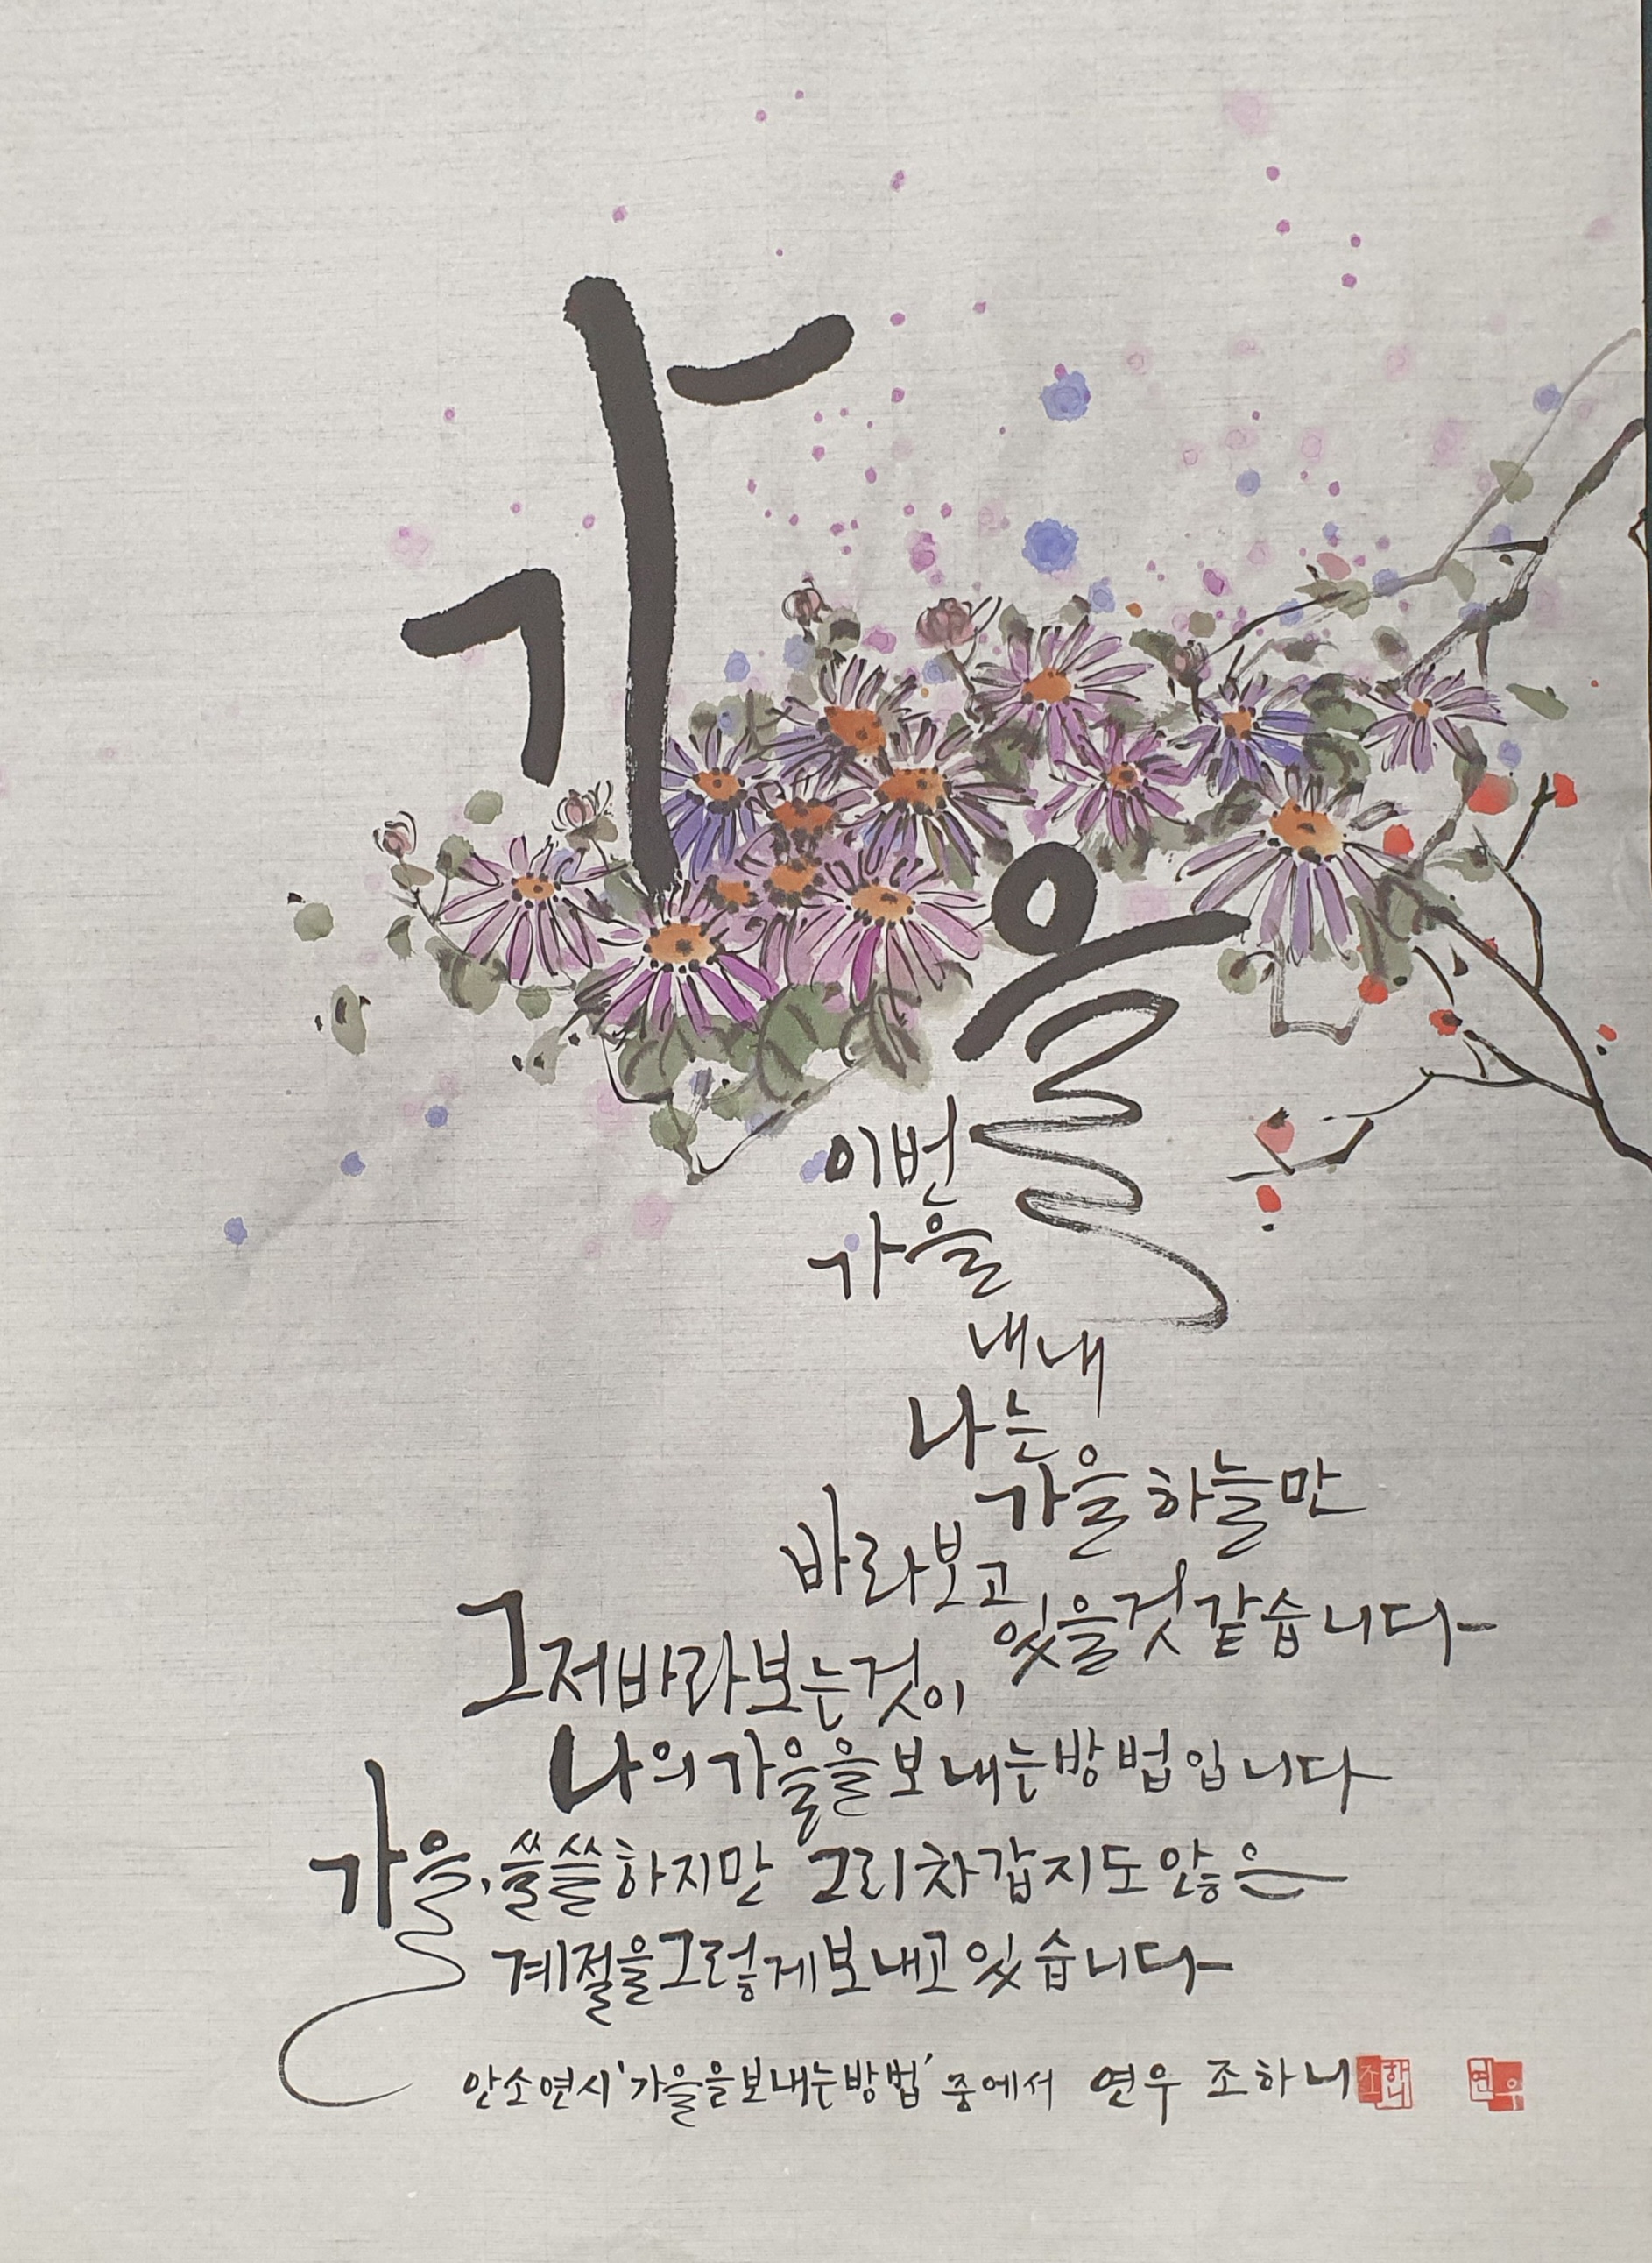 가을
이번
가을
내내
나는
가을 하늘만
바라보고
있을것 같습니다
그저 바라보는 것이
나의 가을을 보내는 방법입니다
가을, 쓸쓸하지만 그리 차갑지도 않은
계절을 그렇게 보내고 있습니다
안소연시 '가을을 보내는 방법' 중에서 연우 조하니
조하니 연우